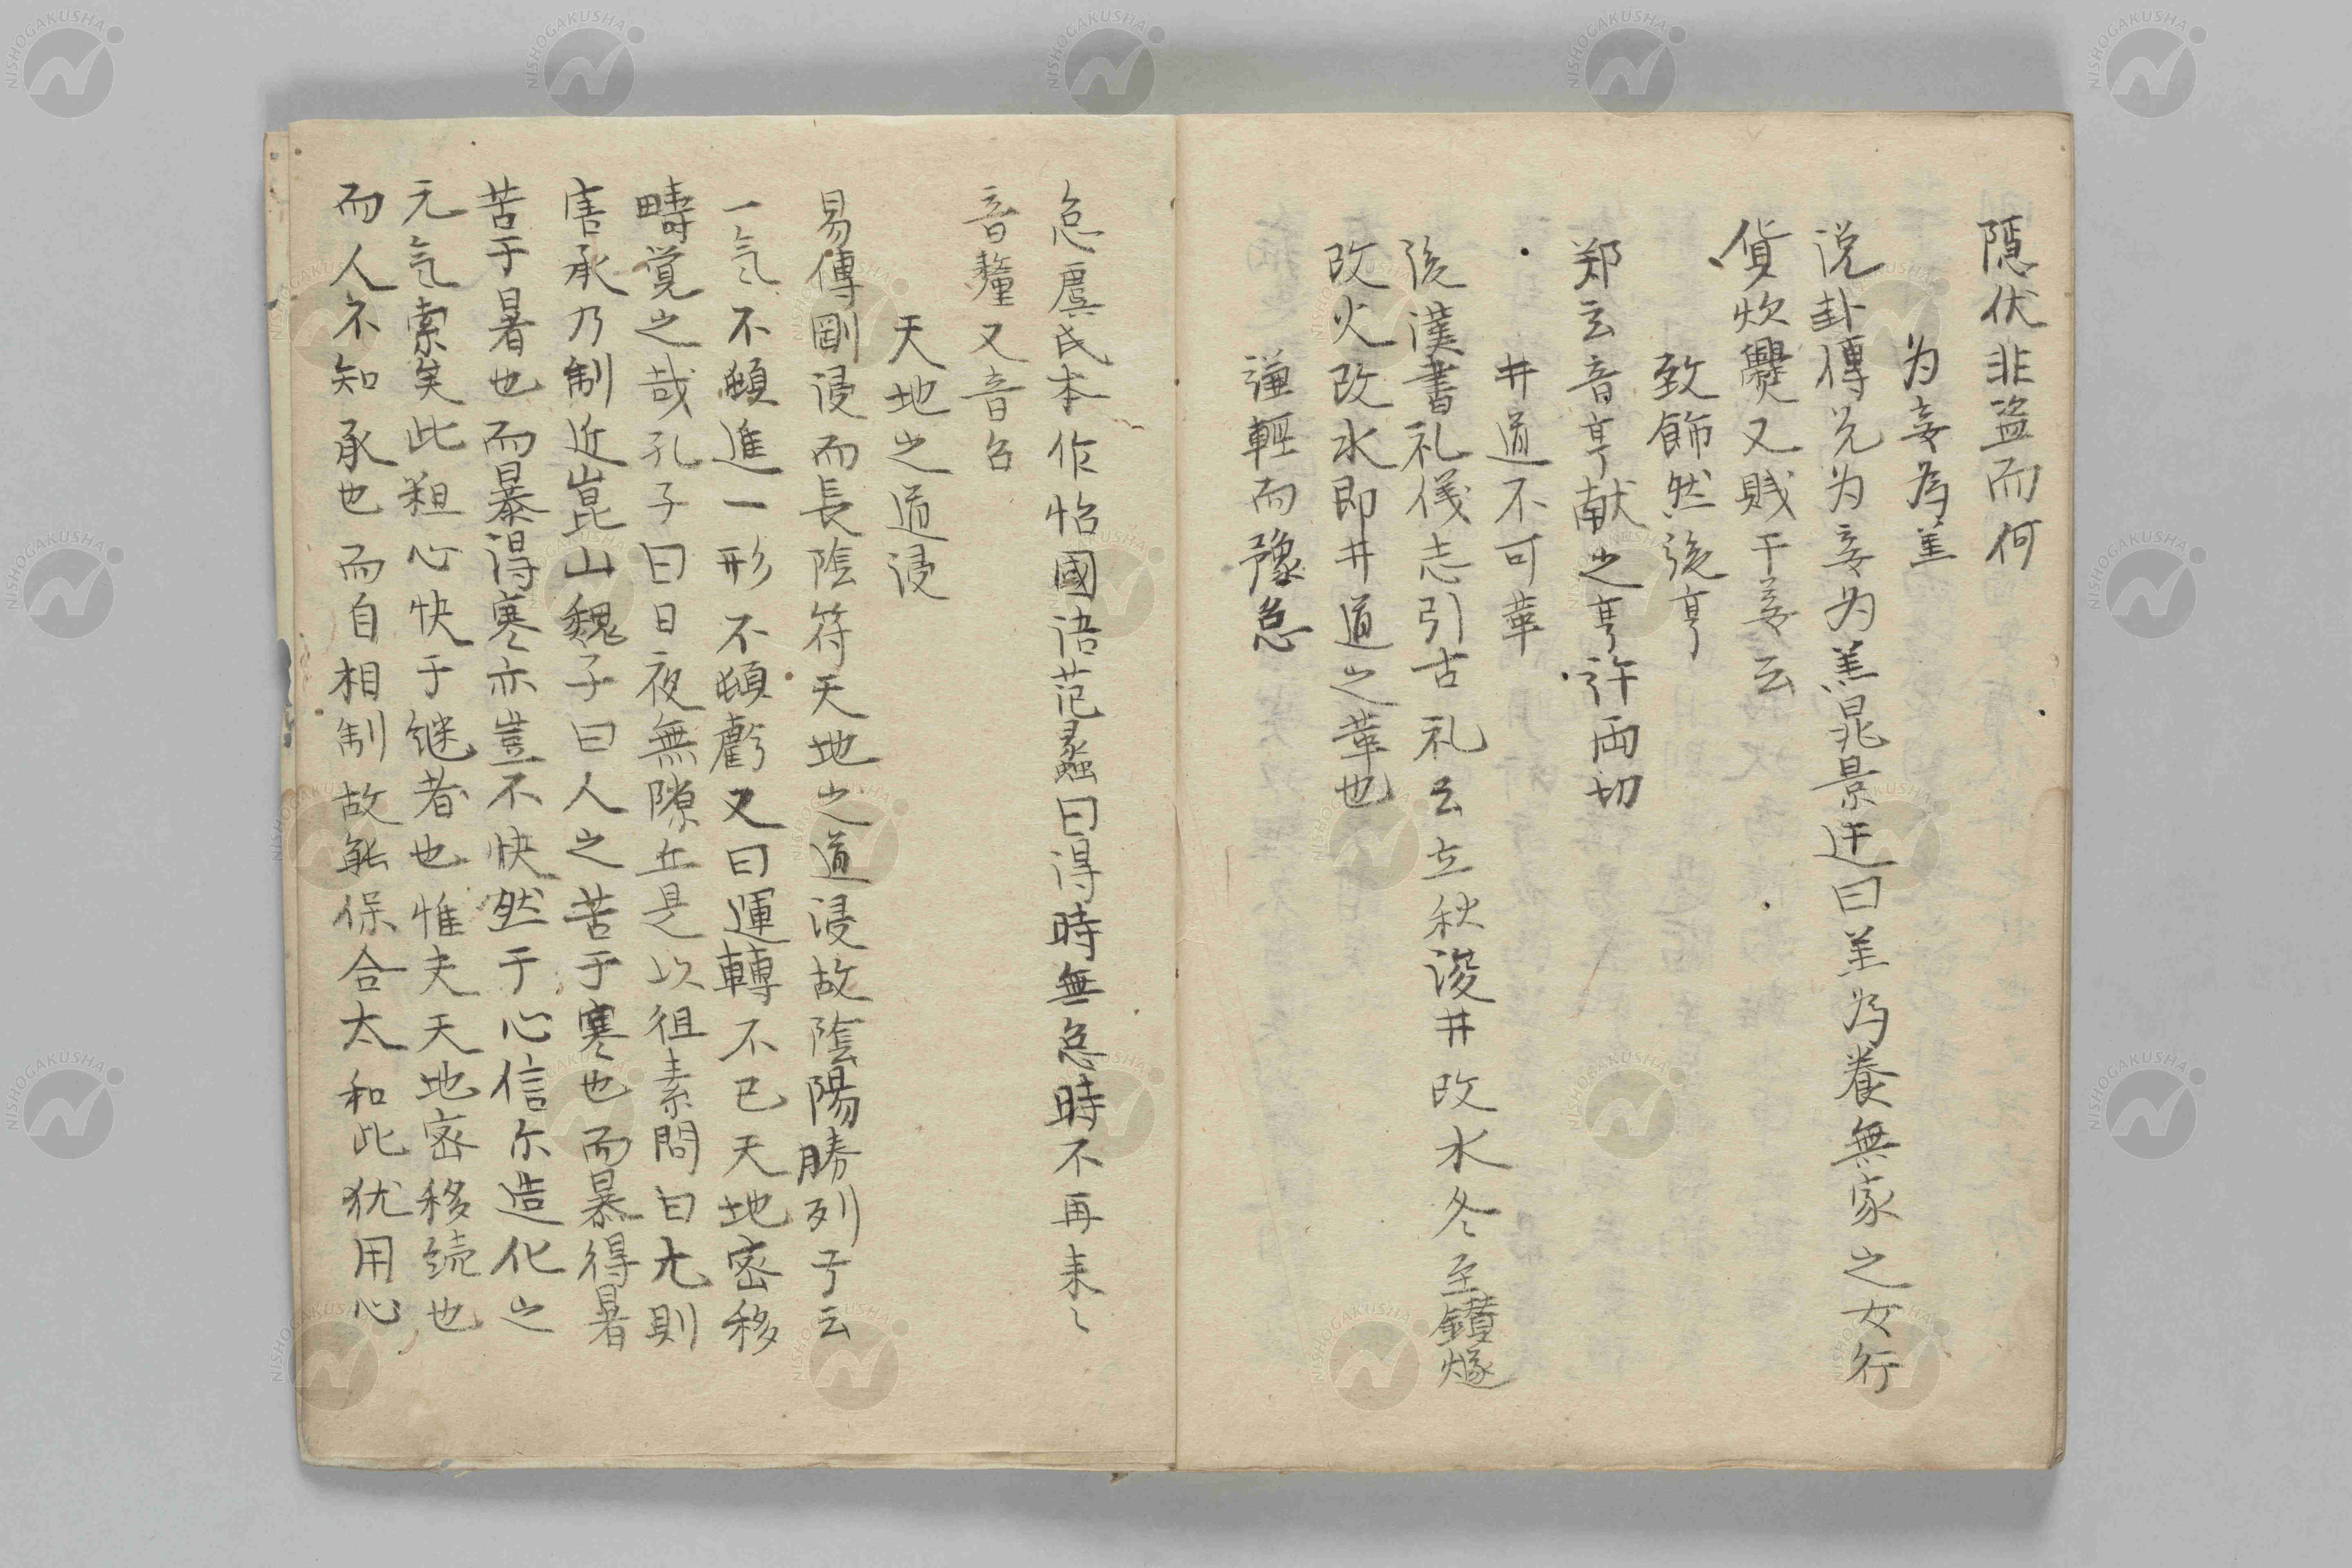 隠伏非盗而何
为妾為羊
说卦傳兌为妾为羔晁景迂曰羊為養無家之女行
貨炊爨又賤于妾云
致飾然後亨
郑云音亨献之亨许両切
井道不可革
後漢書礼儀志引古礼云立秋浚井改水冬至鑚燧
改火改水即井道之革也
謙輕而豫怠
怠虞氏本作怡國语范蠡曰得時無怠時不再来〻
音釐又音台
天地之道浸
易傳剛浸而長陰符天地之道浸故陰陽勝列子云
一气不頓進一形不頓虧又曰運轉不已天地密移
疇覚之哉孔子曰日夜無隙丘是以徂素問曰亢則
害承乃制近崑山魏子曰人之苦于寒也而暴得暑
苦于暑也而暴得寒亦豈不快然于心信尓造化之
元气索矣此粗心快于继者也惟夫天地密移続也
而人不知承也而自相制故能保合太和此犹用心
NISHOGAKUSHA